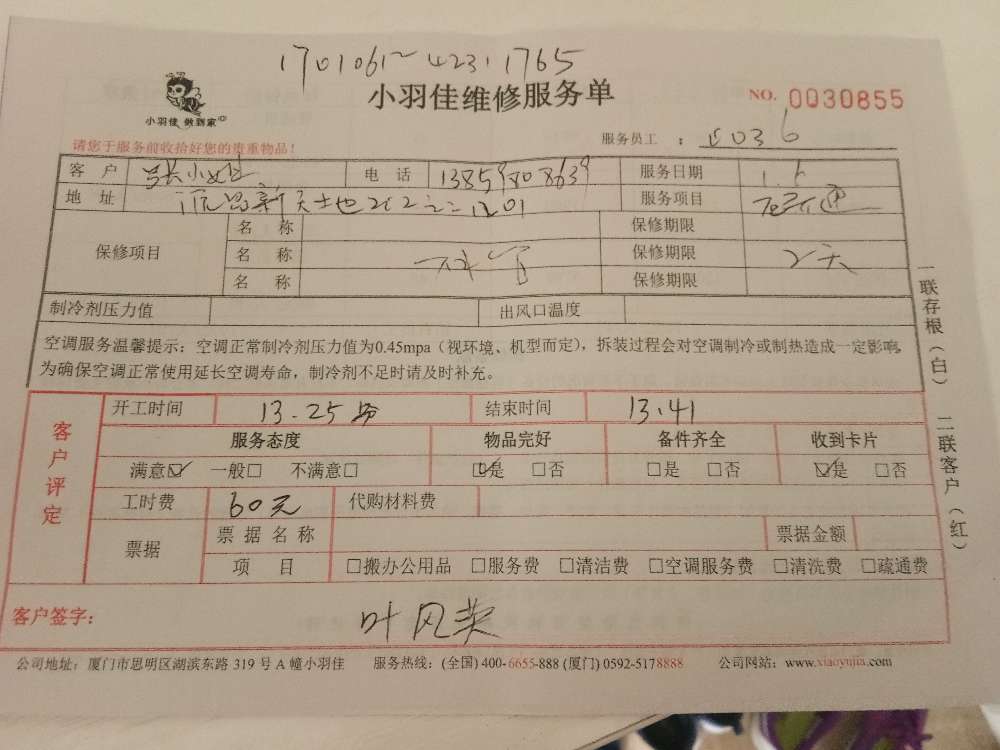 1701061~42311765
小羽佳 做到家
小羽佳维修服务单
NO. 0030855
请您于服务前收拾好您的贵重物品!
服务员工 :
客 户 张小姐 电 话 服务日期 1.6
地 址 新天地 服务项目
保修项目 名 称 保修期限
名 称 下水管 保修期限 2天
名 称 保修期限
制冷剂压力值 出风口温度
空调服务温馨提示:空调正常制冷剂压力值为0.45mpa(视环境、机型而定),拆装过程会对空调制冷或制热造成一定影响,
为确保空调正常使用延长空调寿命,制冷剂不足时请及时补充。
客户评定
开工时间 13.25 结束时间 13.41
服务态度 物品完好 备件齐全 收到卡片
满意☑ 一般□ 不满意□ ☑是 □否 □是 □否 ☑是 □否
工时费 60元 代购材料费
票据 票据名称 票据金额
项 目 □搬办公用品 □服务费 □清洁费 □空调服务费 □清洗费 □疏通费
客户签字: 叶风英
公司地址:厦门市思明区湖滨东路 319 号 A 幢小羽佳 服务热线:(全国) 400-6655-888 (厦门) 0592-5178888 公司网站:www.xiaoyujia.com
一联存根(白) 二联客户(红)